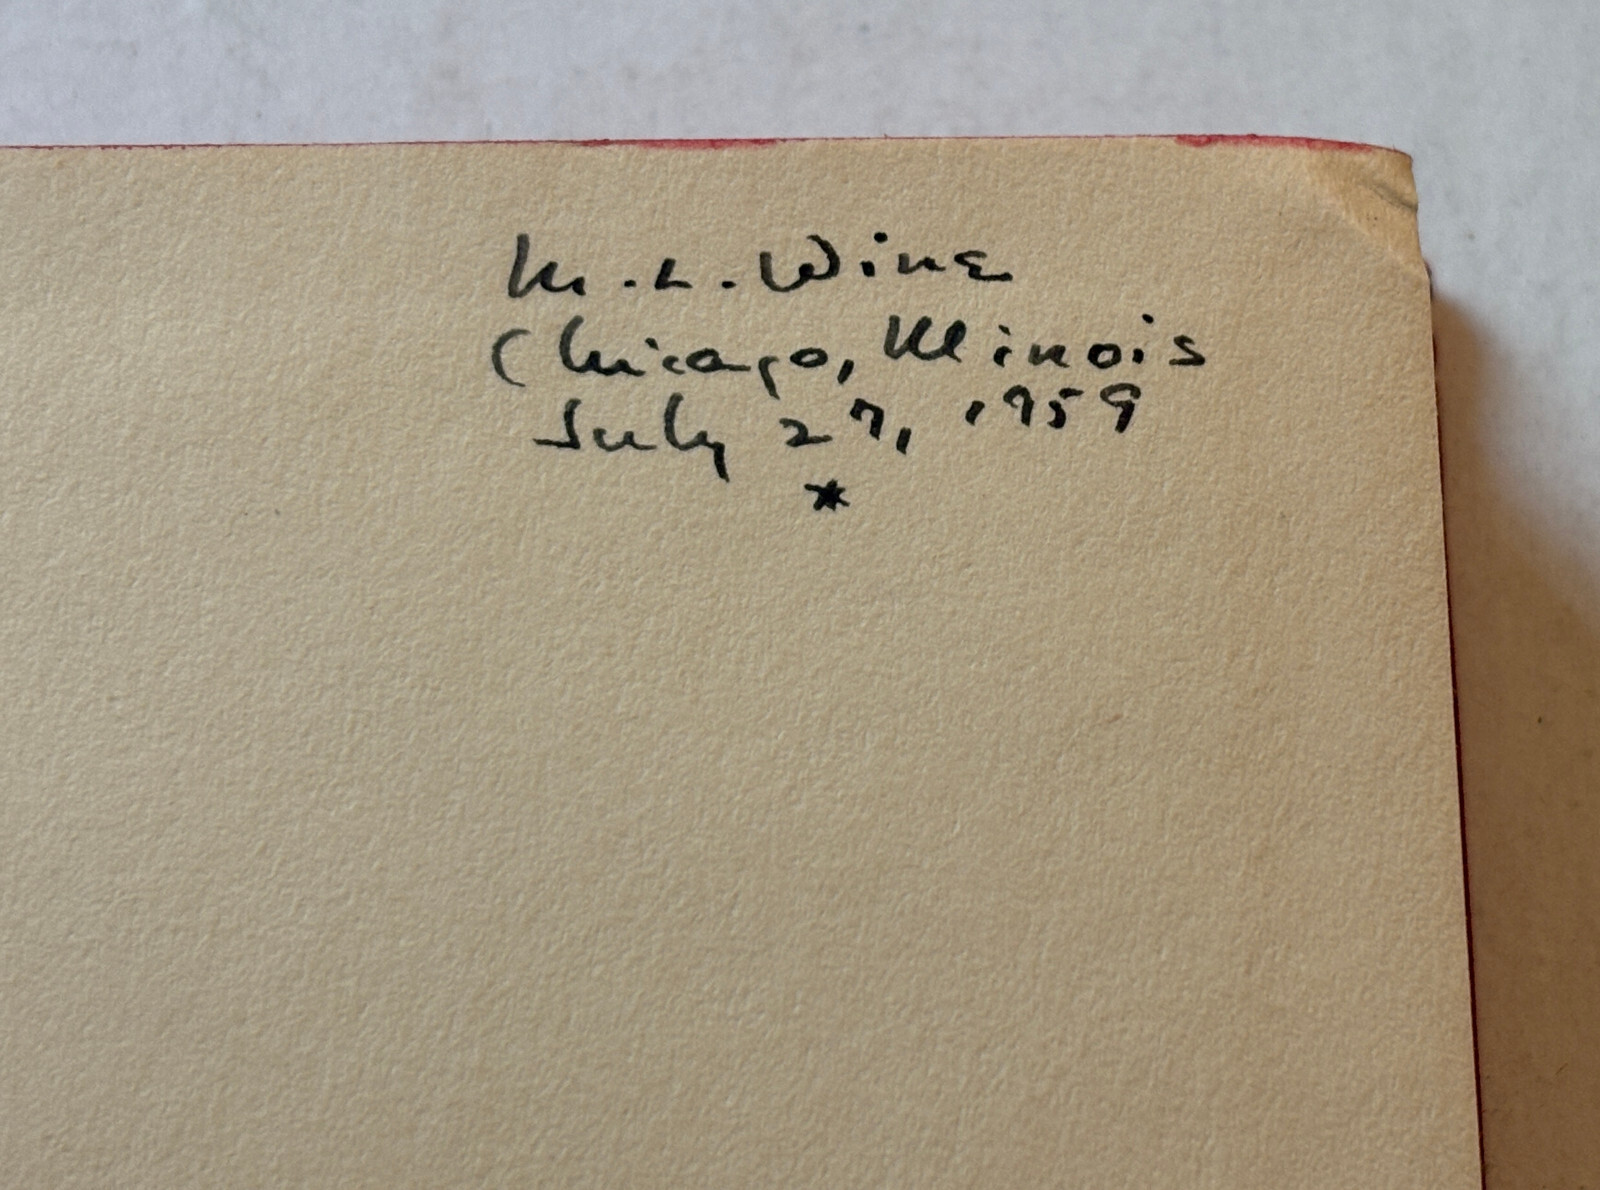 M. L. Wine
Chicago, Illinois
July 27, 1959
*